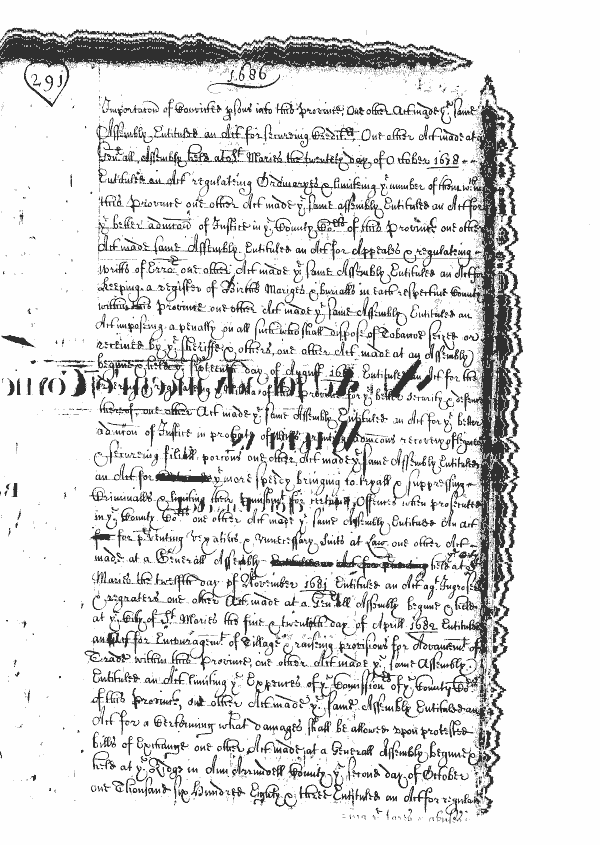 291
1686
Importacon of Convicted psons into this Province, One other Act made ye same
Assembly Entituled an Act for secureing Creditrs, One other Act made at a
Genall Assembly held at St Maries the twenty day of October 1678
Entituled an Act regulateing Ordinaryes & limiteing ye number of them wthin
this Province one other Act made ye same Assembly Entituled an Act for
ye better admcon of Justice in ye County Corts of this Province one other
Act made same Assembly Entituled an Act for Appeales & regulating
writts of Error, one other Act made ye same Assembly Entituled an Act for
Keeping a register of Births Mariges & burialls in each respective County
within this Province one other Act made ye same Assembly Entituled an
Act imposeing a penalty on all such who shall dispose of Tobaccoe seized or
received by ye Sheriffe & others, one other Act made at an Assembly
begune & held ye sixteenth day of August Entituled an Act for the
of this Province for ye better security & defence
thereof, one other Act made ye same Assembly Entituled an Act for ye better
admcon of Justice in probate of wills granting admcons recovery of
& secureing filiall porcons one other Act made ye same Assembly Entituled
an Act for ye more speedy bringing to tryall & suppressing
Criminalls & limiting their punishmt for certaine Offences when prosecuted
in ye County Corts one other Act made ye same Assembly Entituled an Act
for pventing vexatious & unnecessary Suits at Law one other Act
made at a Generall Assembly held at ye Citty
Maries the twelfth day of November 1681 Entituled an Act agt Ingrossers
& regraters one other Act made at a Genall Assembly begune & held
at ye Citty of St Maries the five & twentyth day of Aprill 1682 Entituled
an Act for Encouragemt of Tillage & raiseing provisions for Advancemt of
Trade within this Province, one other Act made ye same Assembly
Entituled an Act limiting ye Expences of ye Comissionrs of ye County Corts
of this Province, one other Act made ye same Assembly Entituled an
Act for Ascertaining what damages shall be allowed upon protested
bills of Exchange one other Act made at a Generall Assembly begune &
held at ye Ridge in Ann Arrundell County ye second day of October
one Thousand six Hundred Eighty & three Entituled an Act for regulat